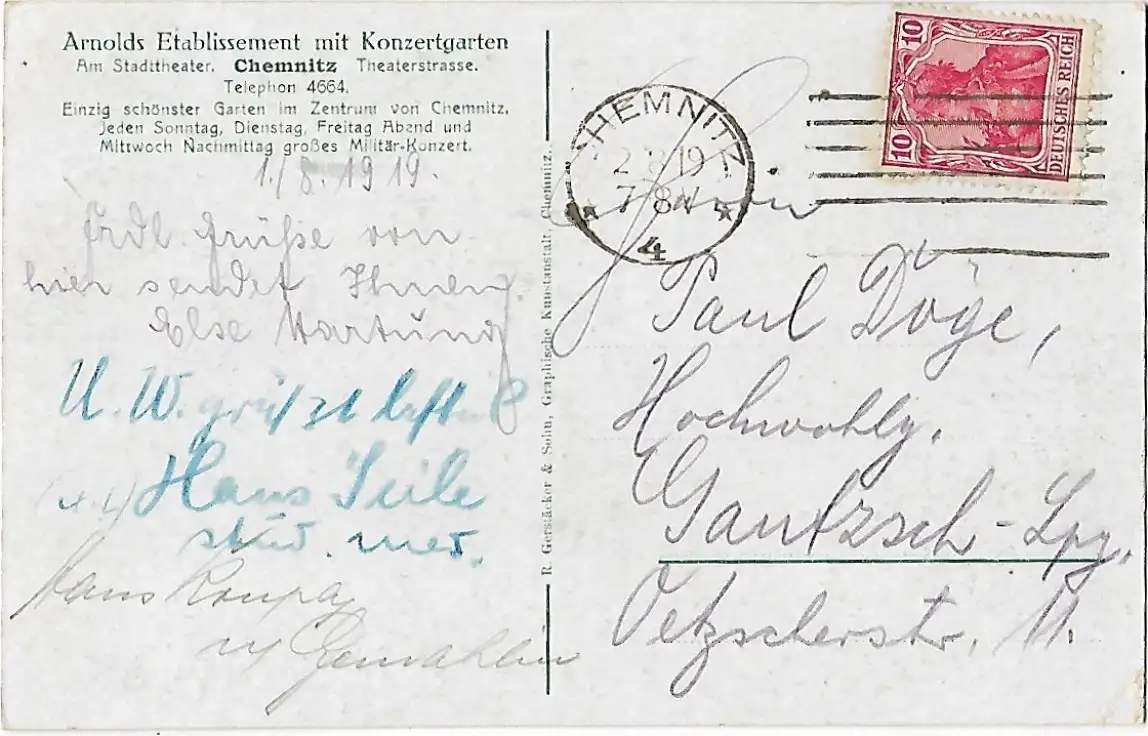 Arnolds Etablissement mit Konzertgarten
Am Stadttheater. Chemnitz Theaterstrasse.
Telephon 4664.
Einzig schönster Garten im Zentrum von Chemnitz.
Jeden Sonntag, Dienstag, Freitag Abend und
Mittwoch Nachmittag großes Militär-Konzert.
1./8.1919.
Frdl. Grüße von
hier sendet Ihnen
Else Hartung
U. W. grüßt
Hans Seile
stud. med.
Hans
u/ Gemahlin
R. Gerstäcker & Sohn, Graphische Kunstanstalt, Chemnitz.
CHEMNITZ
2 8 19
7-8V
* 4 *
10 10
DEUTSCHES REICH
Herrn
Paul Döge,
Hochwohlg.
Gautzsch-Lpg.
Oetzscherstr. 11.